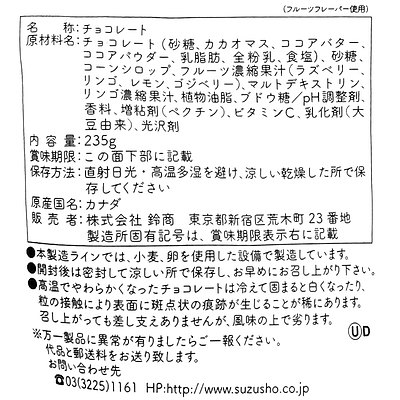 (フルーツフレーバー使用)
名称:チョコレート
原材料名:チョコレート(砂糖、カカオマス、ココアバター、
ココアパウダー、乳脂肪、全粉乳、食塩)、砂糖、
コーンシロップ、フルーツ濃縮果汁(ラズベリー、
リンゴ、レモン、ゴジベリー)、マルトデキストリン、
リンゴ濃縮果汁、植物油脂、ブドウ糖/pH調整剤、
香料、増粘剤(ペクチン)、ビタミンC、乳化剤(大
豆由来)、光沢剤
内容量:235g
賞味期限:この面下部に記載
保存方法:直射日光・高温多湿を避け、涼しい乾燥した所で保
存してください
原産国名:カナダ
販売者:株式会社 鈴商 東京都新宿区荒木町23番地
製造所固有記号は、賞味期限表示右に記載
●本製造ラインでは、小麦、卵を使用した設備で製造しています。
●開封後は密封して涼しい所で保存し、お早めにお召し上がり下さい。
●高温でやわらかくなったチョコレートは冷えて固まると白くなったり、
粒の接触により表面に斑点状の痕跡が生じることが稀にあります。
召し上がっても差し支えありませんが、風味の上で劣ります。
※万一製品に異常が有りましたらご一報ください。
代品と郵送料をお送り致します。
お問い合わせ先
☎03(3225)1161 HP:http://www.suzusho.co.jp
ⓊD